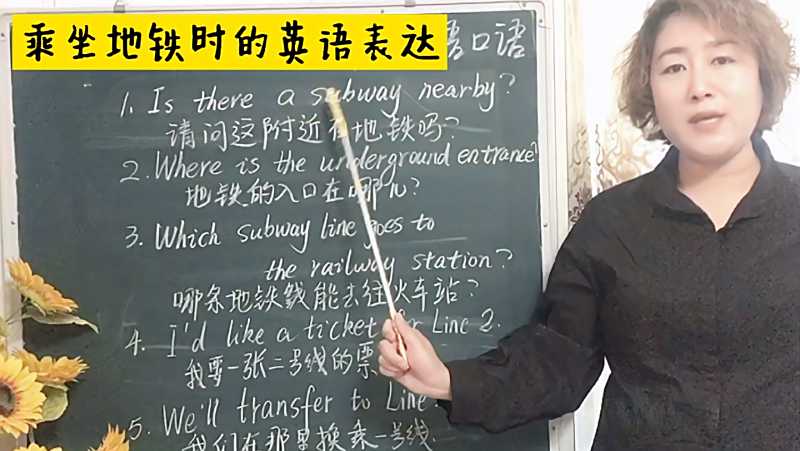 乘坐地铁时的英语表达
语口语
1. Is there a subway nearby?
请问这附近有地铁吗?
2. Where is the underground entrance?
地铁的入口在哪儿?
3. Which subway line goes to
the railway station?
哪条地铁线能去往火车站?
4. I'd like a ticket for Line 2.
我要一张二号线的票
5. We'll transfer to Line
我们在那里换乘一号线.